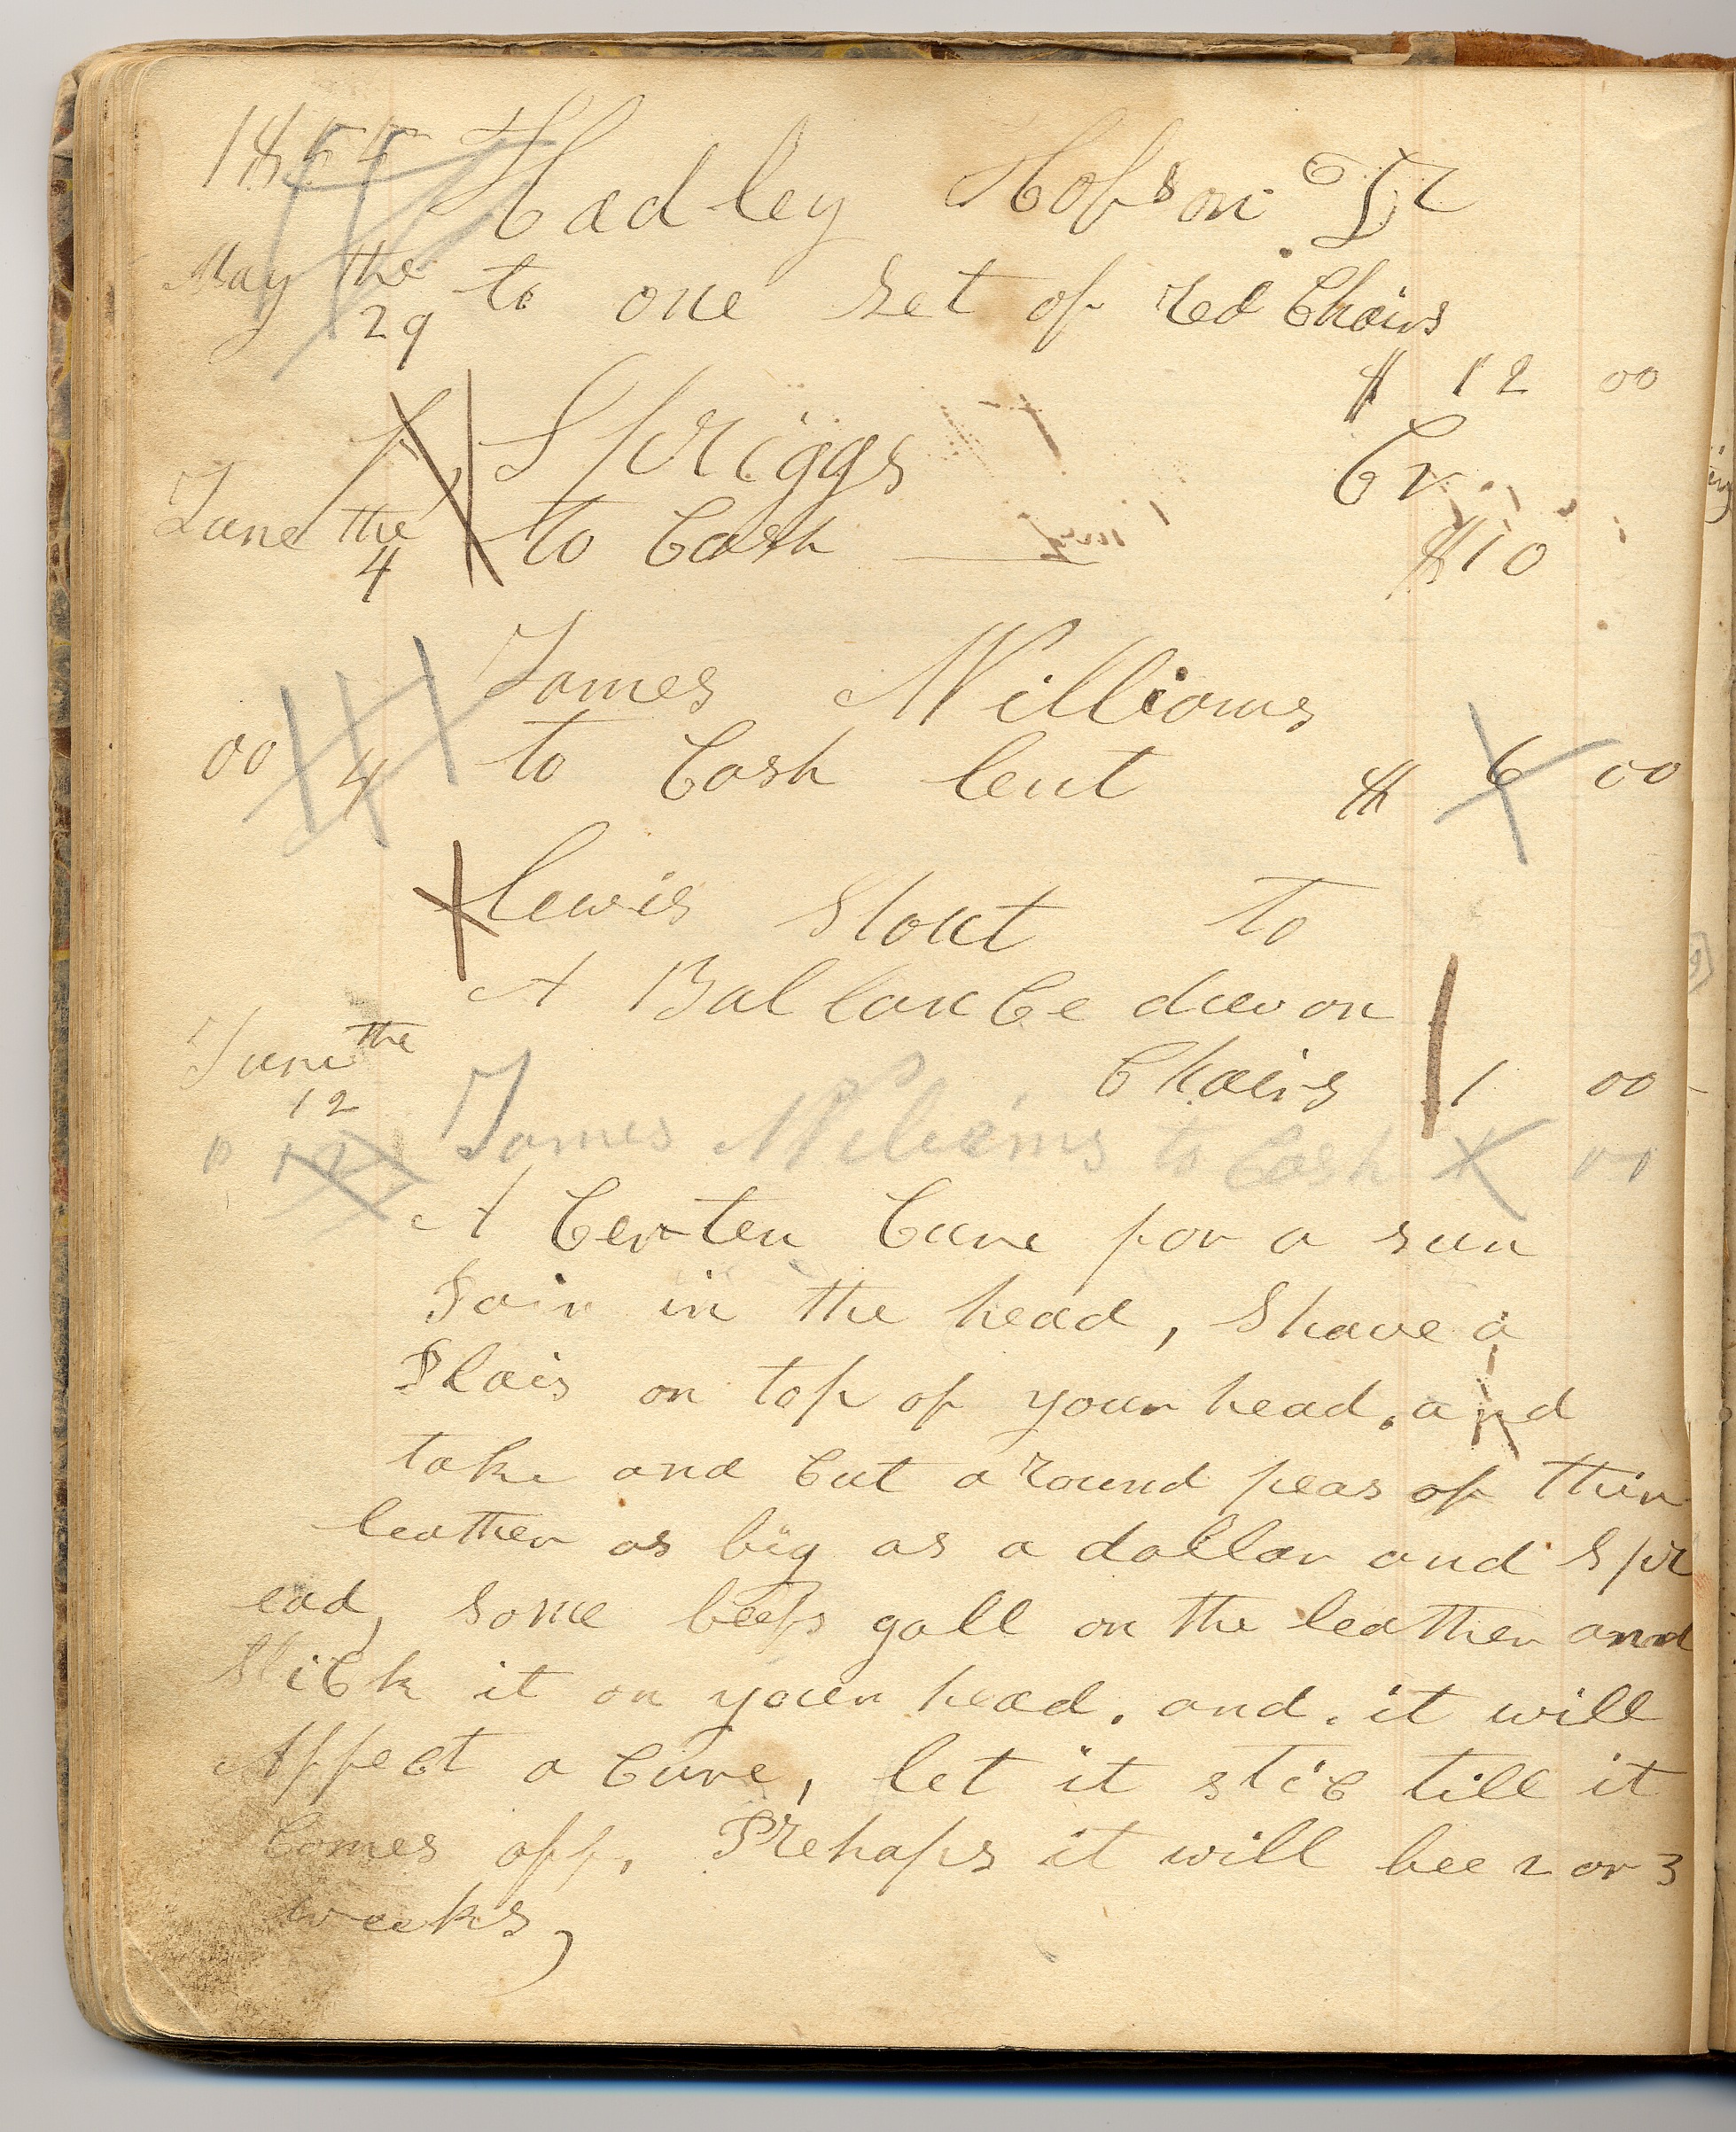 1855 Hadley Hobson Dr
May the 29 to one set of red Chairs
$ 12 00
Spriggs Cr
June the 4 to Cash $10
James Williams
00 4 to Cash lent $ 6 00
Lewis Stout To
A Ballance duw on
June the 12 Chairs 1 00
James Williams to Cash 00
A Certen Cure for a sun
Pain in the head, Shave a
Plais on top of your head, and
take and Cut a round peas of thin
leather as big as a dollar and Spr
ead, some beefs gall on the leather and
Stick it on your head. and. it will
Affect a Cure, let it stic till it
Comes off, Prehaps it will bee 2 or 3
weeks,